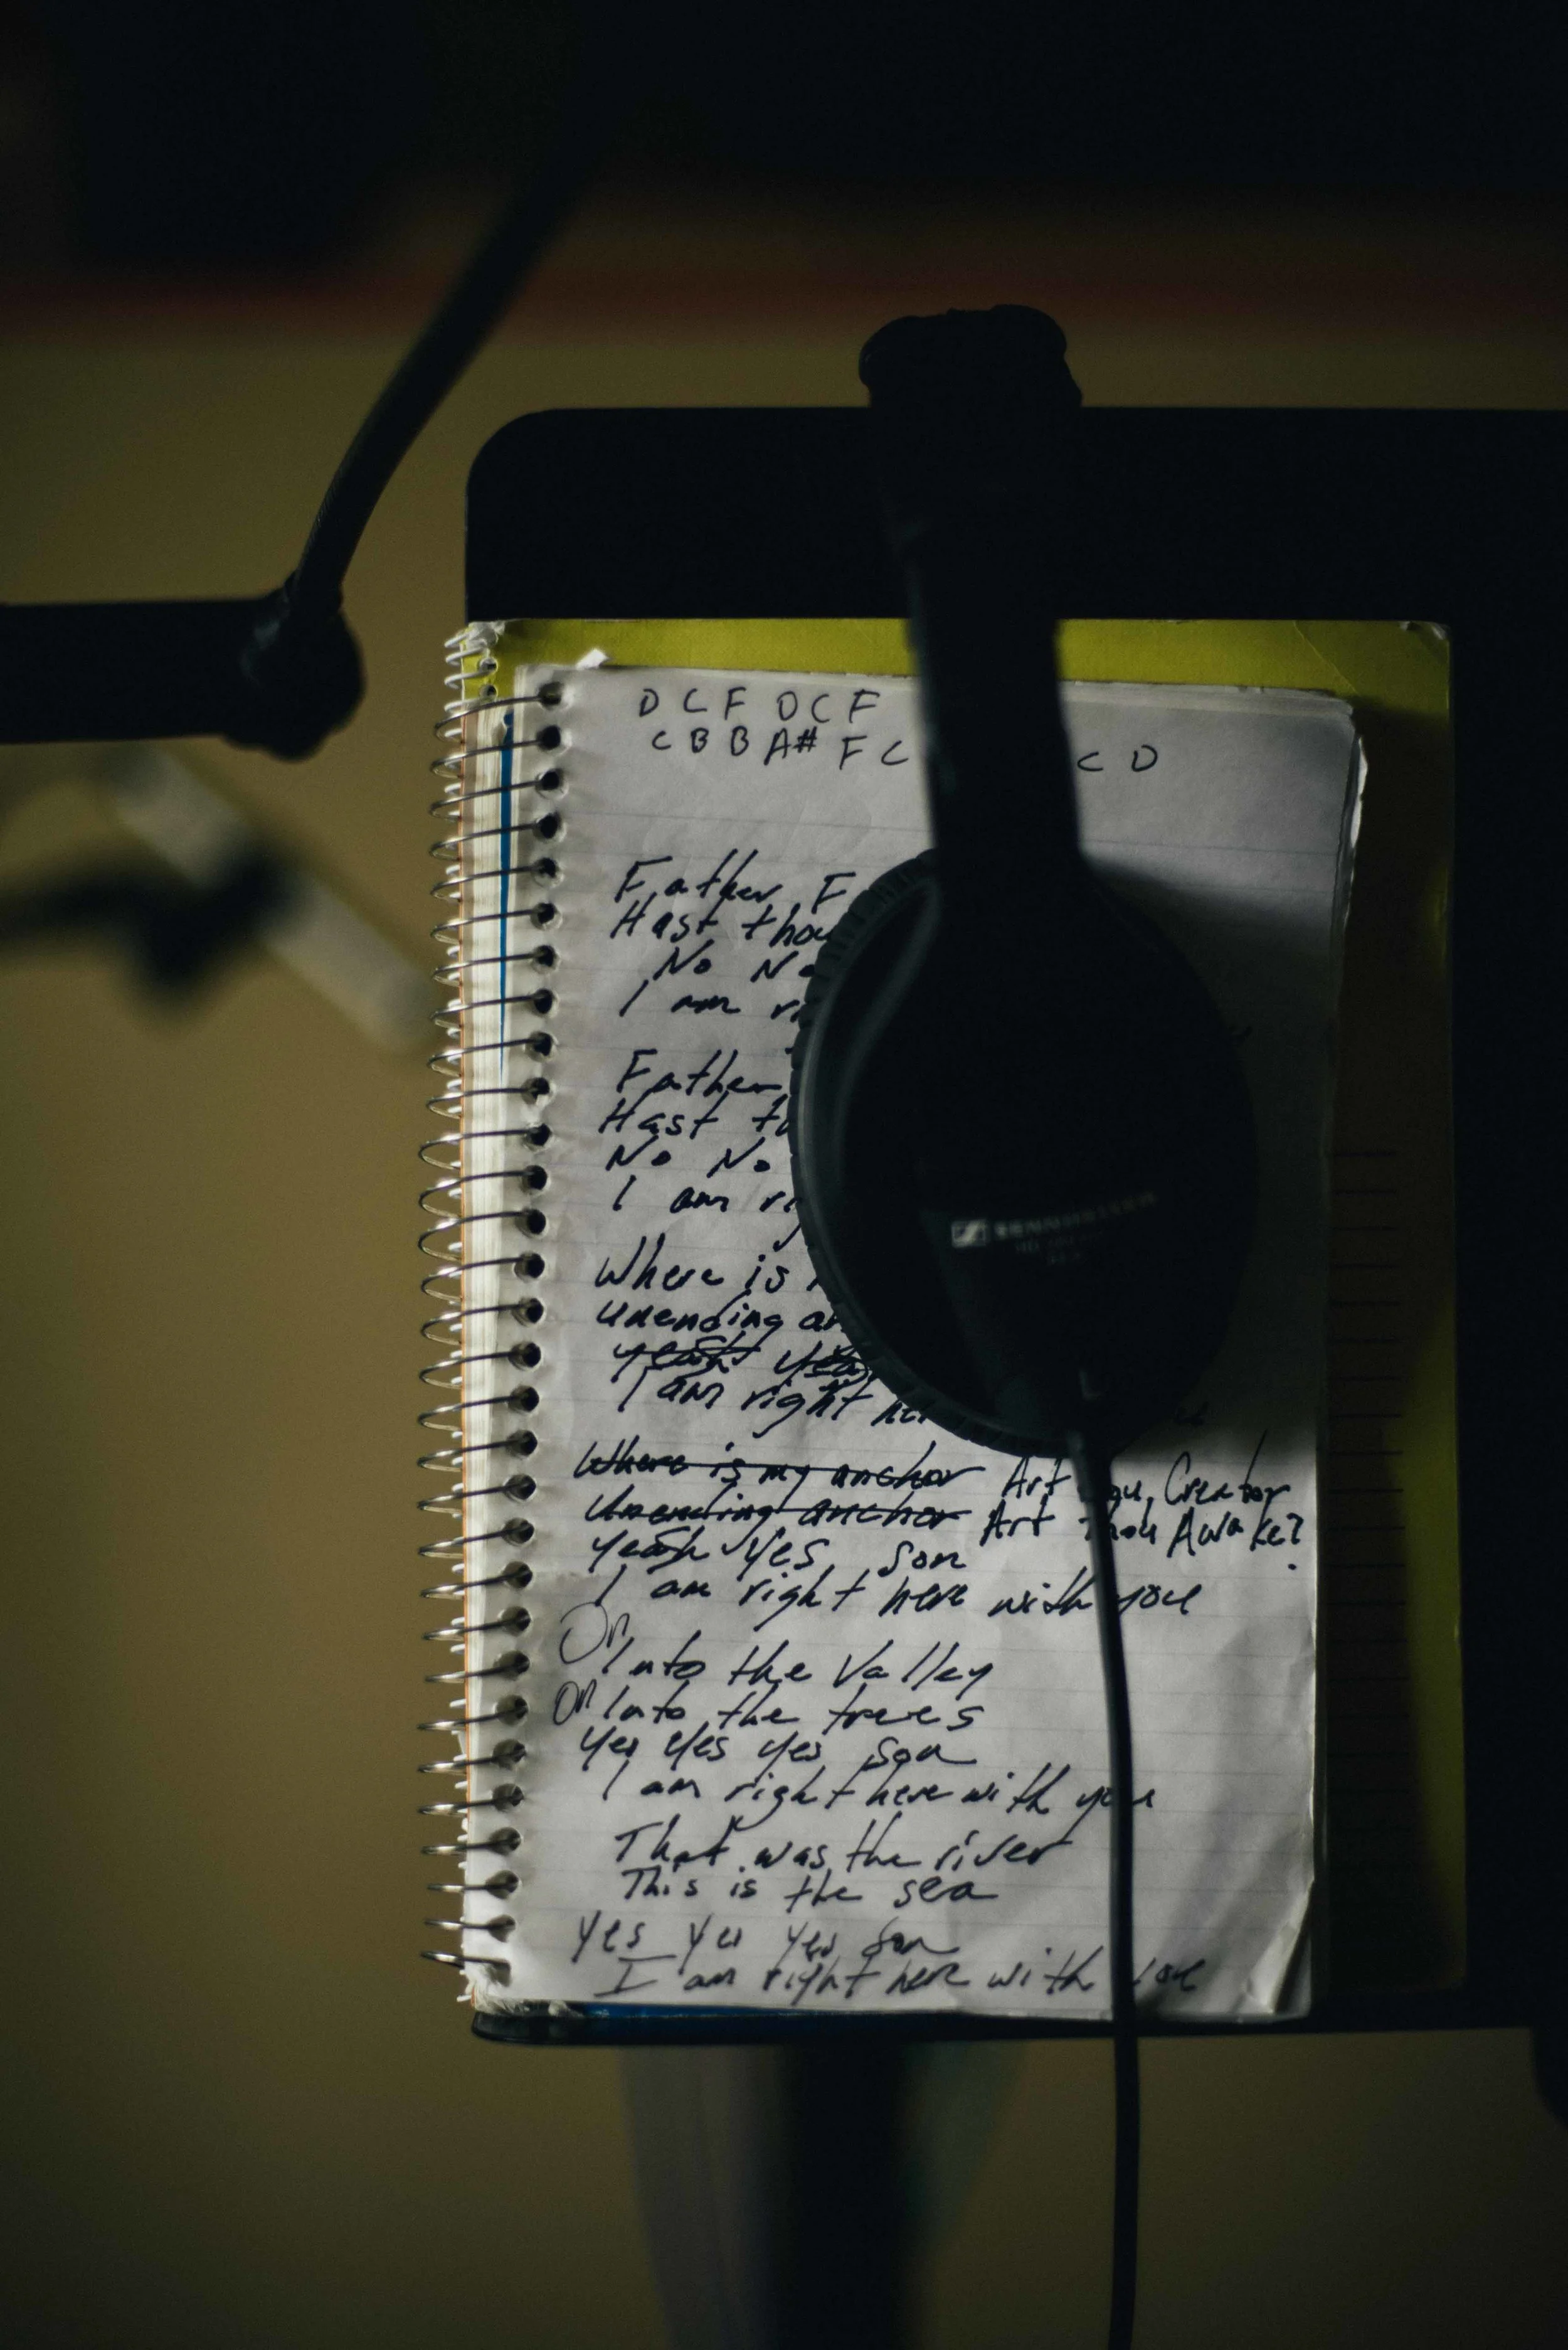 D C F D C F
C B B A# F C C D
Father F
Hast thou
No No
I am
Father
Hast
No No
I am
Where is
unending
yeah
I am right
Where is my anchor Art thou, Creator
Unending anchor Art Thou Awake?
yeah Yes son
I am right here with you
On Into the Valley
On Into the trees
Yes Yes Yes son
I am right here with you
That was the river
This is the sea
Yes Yes Yes son
I am right here with you
SENNHEISER